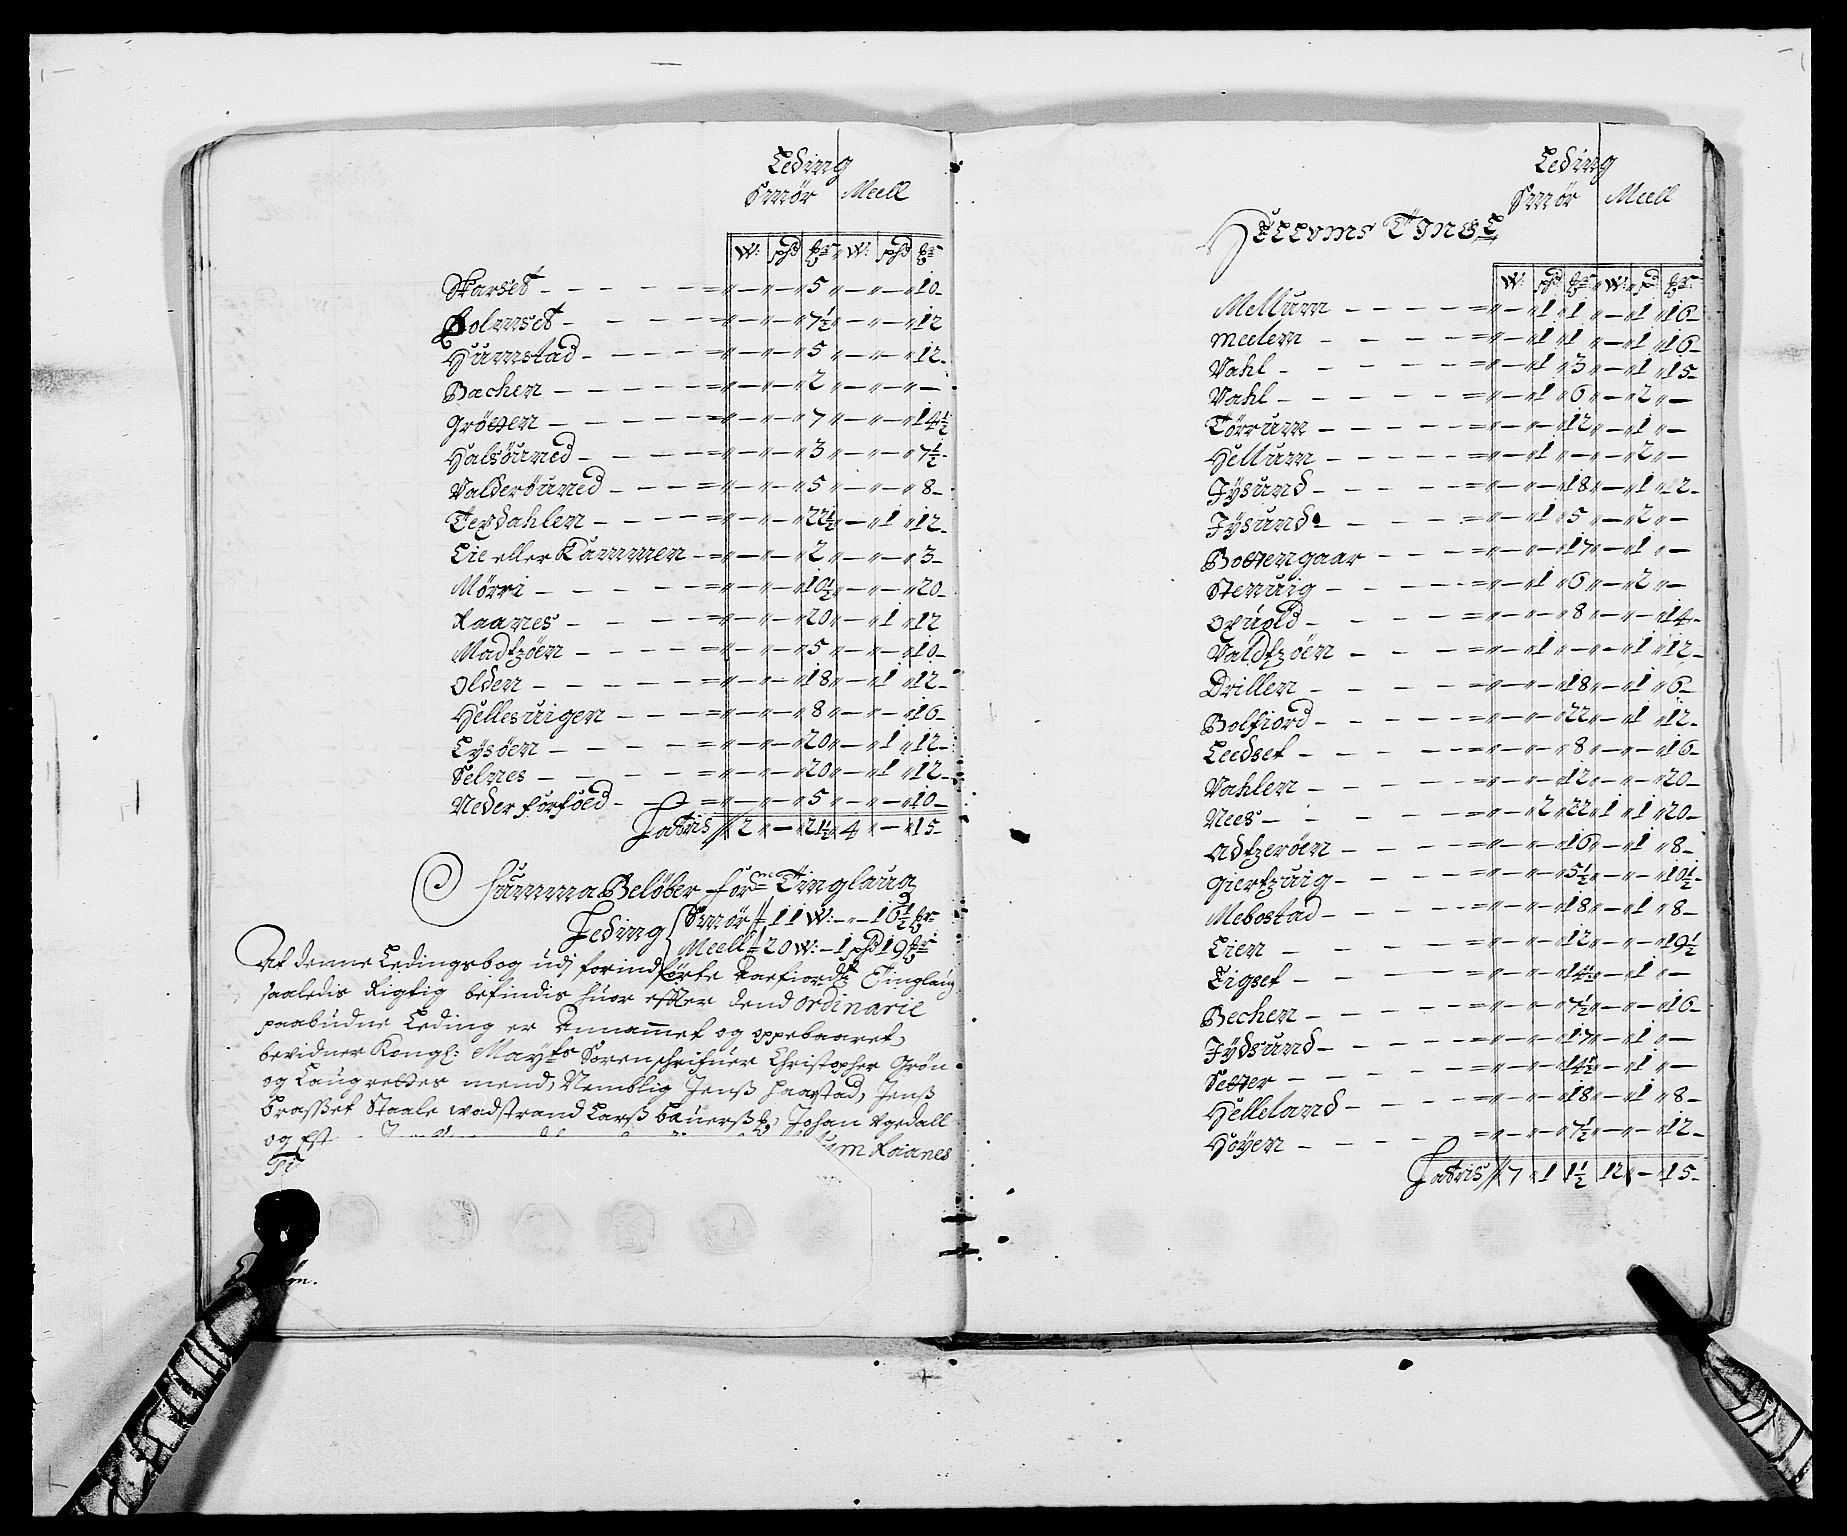 Leding
Smör Meell
W: phd ℔r W: phd ℔r
Skarset - - - - = " - " - " 5 " - " - " 10 -
Holmset - - - - = " - " - " 7½ " - " - " 12
Humstad - - - - = " - " - " 5 " - " - " 12 -
Bachen - - - - - = " - " - " 2 " - " - " -
Grötten - - - - = " - " - " 7 " - " - " 14½
Halsöuned - - - - = " - " - " 3 " - " - " 7½ -
Valderöuned - - - = " - " - " 5 " - " - " 8 -
Terdahlen - - - - = " - " - " 22½ " - " 1 " 12 -
Lie eller Kammen - = " - " - " 2 " - " - " 3 -
Mörri - - - - = " - " - " 10½ " - " - " 20 -
Raanes - - - - = " - " - " 20 " - " 1 " 12
Madtzöen - - - - = " - " - " 5 " - " - " 10 -
Olden - - - - - = " - " - " 18 " - " 1 " 12 -
Hellesuigen - - - = " - " - " 8 " - " - " 16 -
Lysöen - - - - = " - " - " 20 " - " 1 " 12 -
Selnes - - - - = " - " - " 20 " - " 1 " 12 -
Neder forfold - - = " - " - " 5 " - " - " 10 -
Latris // 2 " - " 21½ " 4 " - " 15 -
Summa Belöber for:ne Tinglaug
Leding Smör = 11 W: - " - 16½ ℔r
Meell = 20 W: - 1 phd 19 ℔r
At denne Ledingsbog udj forindförte Aaefiordtz Tinglaug
saaledis Rigtig befindis huor effter dend ordinarie
paabudne Leding er Annammet og oppebaaret,
bevidner Kongl: Mayts Sorenschrifuer Christopher Grön
og Laugrettes mend, Nemblig Jenß Haarstad, Jenß
Braßet Staale wadstrand Larß Bauerß, Johan Ugedall
og Est
um Raanes
Leding
Smör Meell
Helloms Tingl
W: phd ℔r W: pd ℔r
Mellum - - - - = " - " 1 " 1 " - " 1 " 16 -
Meelem - - - - = " - " 1 " 1 " - " 1 " 16 -
Vahl - - - - - = " - " 1 " 3 " - " 1 " 15 -
Vahl - - - - - = " - " 1 " 6 " - " 2 " -
Törrum - - - - = " - " - " 12 " - " 1 " -
Hellum - - - - = " - " 1 " - " - " 2 " -
Jysund - - - - = " - " - " 18 " - " 1 " 2 -
Jysund - - - - = " - " 1 " 5 " - " 2 " -
Bottengaar - - - = " - " - " 17 " - " 1 " -
Stenuig - - - - = " - " 1 " 6 " - " 2 " -
Opuold - - - - = " - " - " 8 " - " - " 14 -
Valdtzöen - - - = " - " 1 " - " - " 1 " 12 -
Drillen - - - - = " - " - " 18 " - " 1 " 6 -
Bolfiord - - - - = " - " - " 22 " - " 1 " 12 -
Leedset - - - - = " - " - " 8 " - " - " 16 -
Vahlen - - - - = " - " - " 12 " - " - " 20 -
Nees - - - - - = " - " 2 " 22 " 1 " 1 " 20 -
Adtzeröen - - - - = " - " - " 16 " - " 1 " 8 -
Giertzuig - - - - = " - " - " 5½ " - " - " 10½ -
Mebostad - - - - = " - " - " 18 " - " 1 " 8 -
Lien - - - - - = " - " - " 12 " - " - " 19½
Ligset - - - - = " - " - " 14½ " - " 1 " -
Bechen - - - - = " - " - " 7½ " - " - " 16 -
Jydsund - - - - = " - " - " 17 " - " 1 " -
Setter - - - - = " - " - " 14½ " - " 1 " -
Helleland - - - - = " - " - " 18 " - " 1 " 8 -
Höyen - - - - = " - " - " 7½ " - " - " 12 -
Latris // 7 " 1 " 1½ 12 " - " 15 -